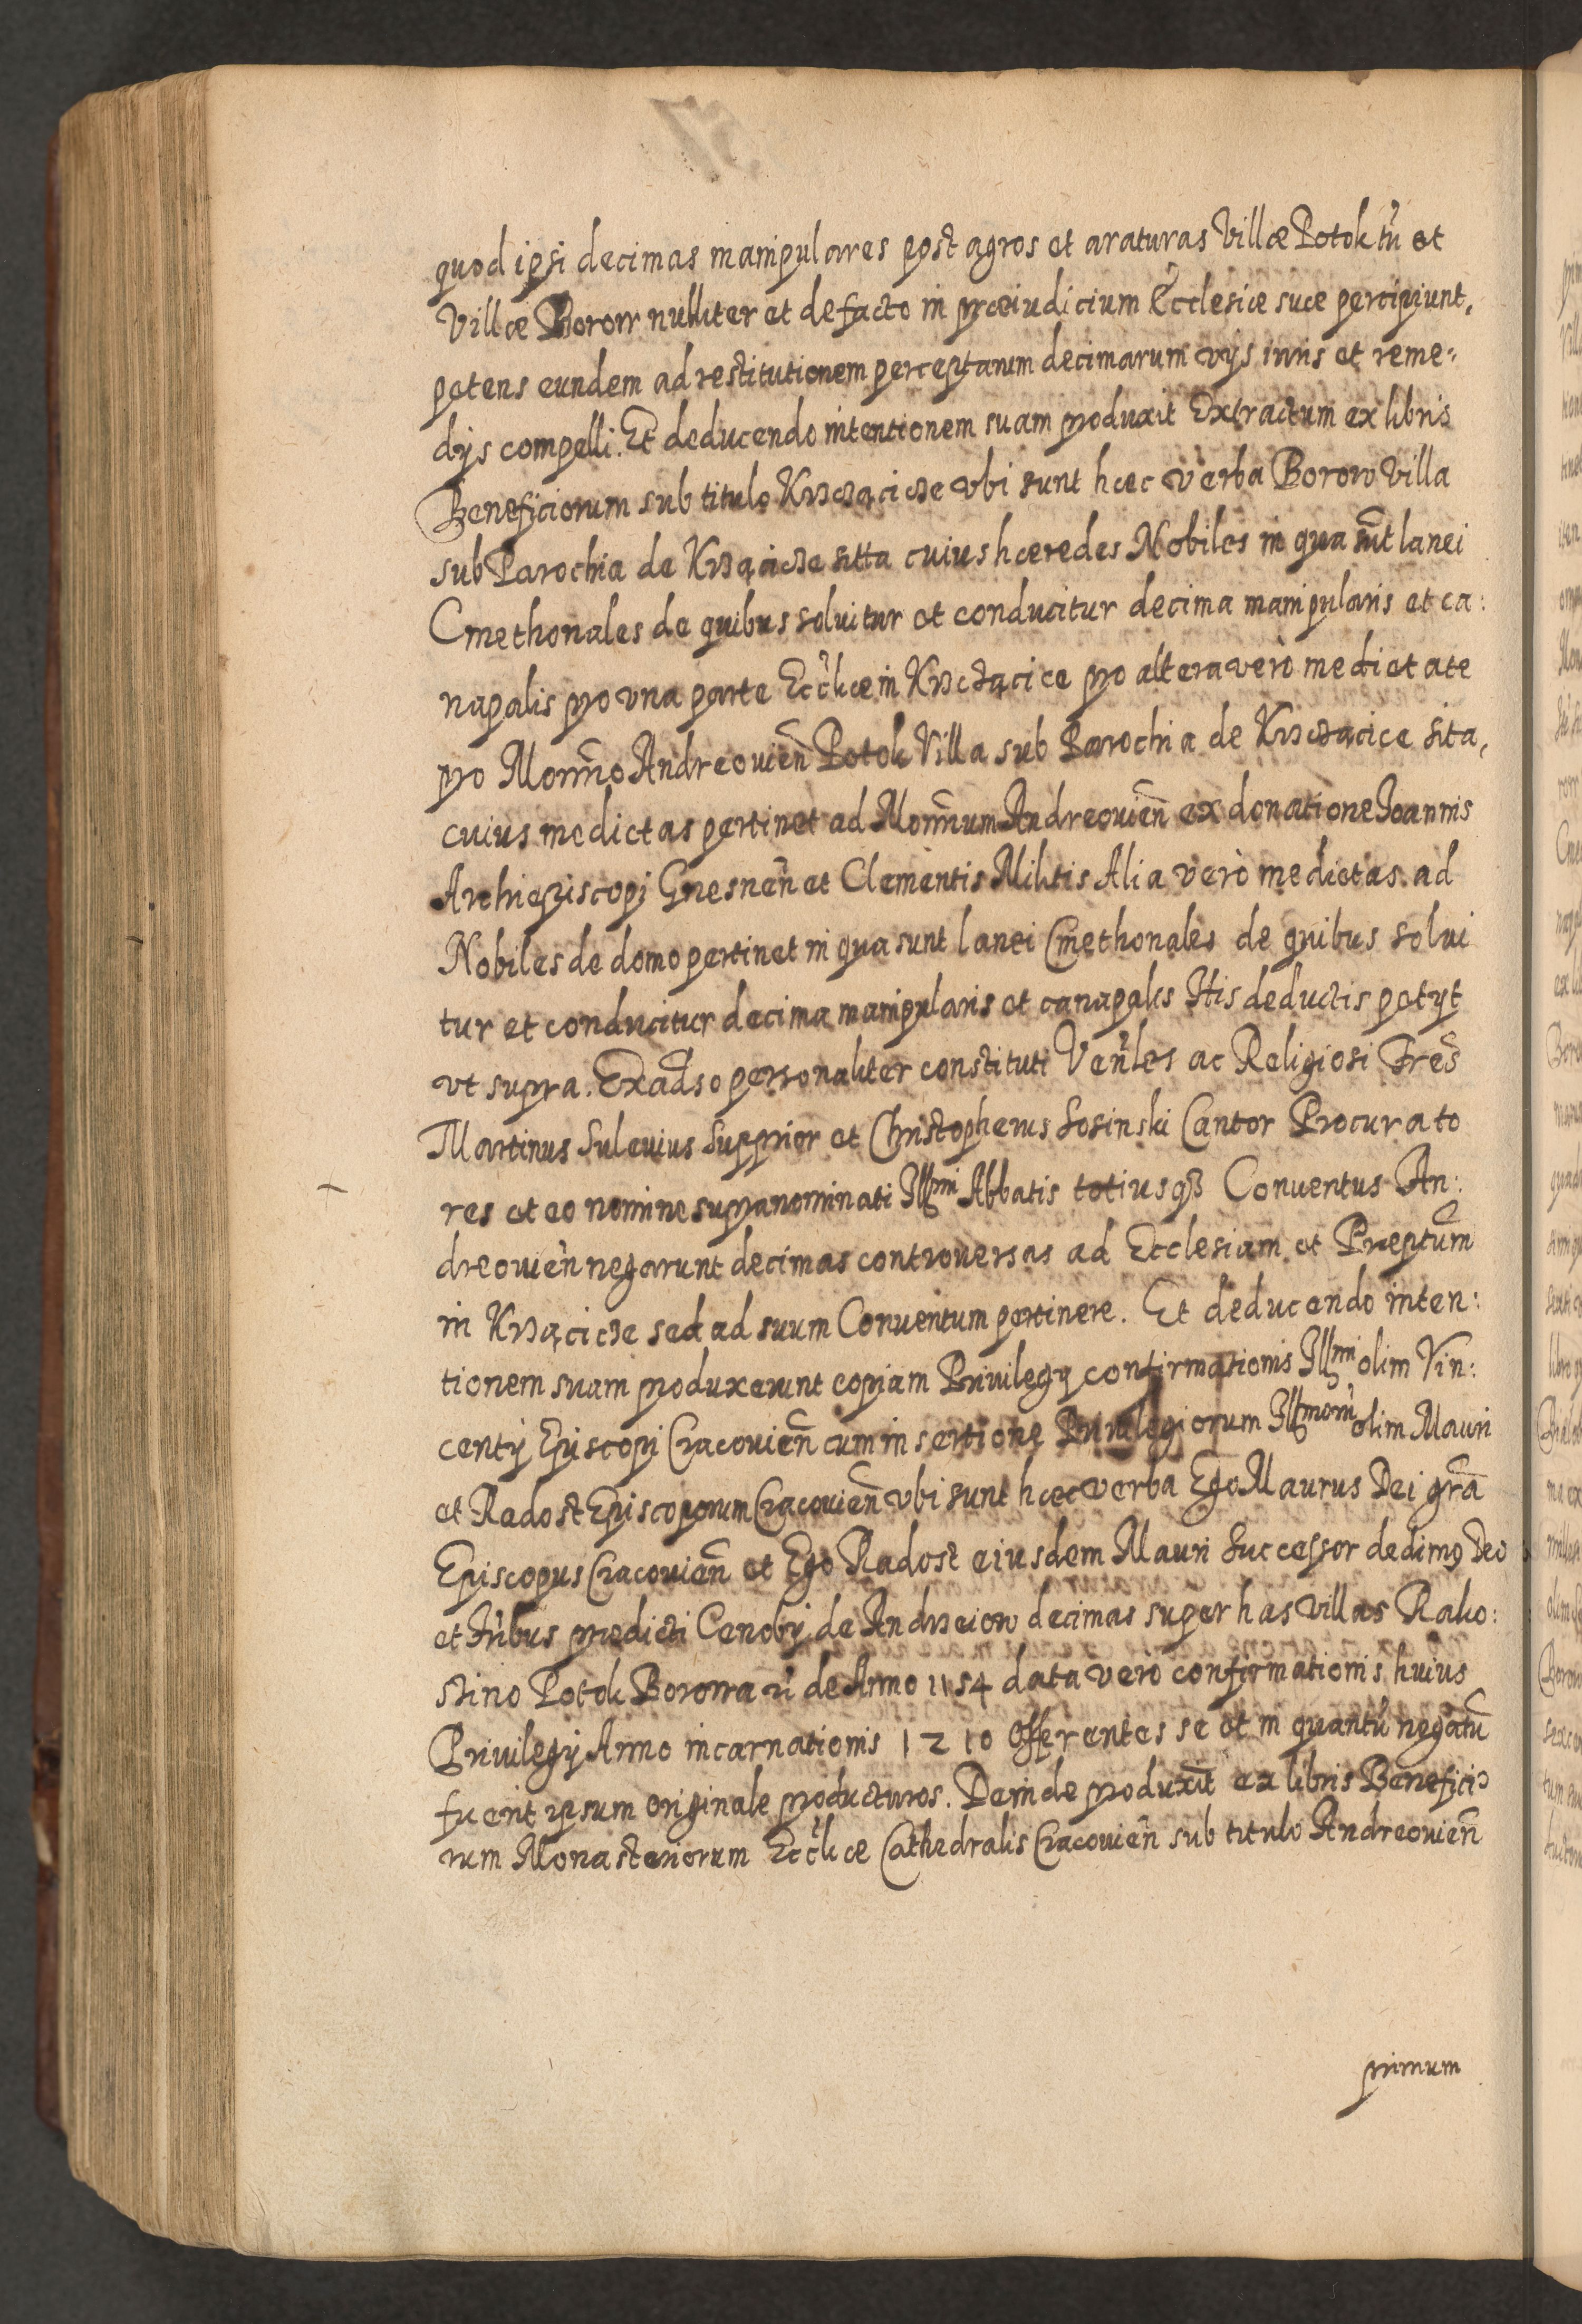 quod ipsi decimas manipulares post agros et araturas Villæ Potok tũ et
Villæ Borow nulliter et de facto in præiudicium Ecclesiæ suæ percipiunt,
petens eundem ad restitutionem perceptarum decimarum vijs iuris et reme-
dijs compelli. Et deducendo intentionem suam produxit Extractum ex libris
Beneficiorum sub titulo Krzczącicze vbi sunt hæc verba Borow Villa
sub Parochia de Krzącicze sitta cuius hæredes Nobiles in qua sũt lanei
Cmethonales de quibus soluitur et conducitur decima manipularis et ca:
napalis pro vna parte Ecc̃liæ in Krzczącice pro altera verò medietate
pro Monr̃io Andreouieñ Potok Villa sub Parochia de Krzczącice sita,
cuius medietas pertinet ad Monr̃ium Andreouieñ ex donatione Joannis
Archiepiscopj Gnesneñ et Clementis Militis Alia verò medietas ad
Nobiles de domo pertinet in qua sunt lanei Cmethonales de quibus solui
tur et conducitur decima manipularis et canapalis His deductis petijt
vt supra. Ex adũso personaliter constituti Veñles ac Religiosi Frẽs
Martinus Suleuius Supprior et Christopherus Sosinski Cantor Procurato
res et eo nomine supranominati Illmi Abbatis totiusqꝫ Conuentus An:
dreouieñ negarunt decimas controuersas ad Ecclesiam et Præptum̃
in Krzącicze sed ad suum Conuentum pertinere. Et deducendo inten:
tionem suam produxerunt copiam Priuilegij confirmationis Illmi olim Vin:
centij Episcopj Cracouieñ cum insertione Priuilegiorum Illmorũ olim Mauri
et Radost Episcoporum Cracouieñ vbi sunt hæc verba Ego Maurus Dei grã
Episcopus Cracouieñ et Ego Radost eiusdem Mauri Successor dedimꝰ Deo
et fr̃ibus prædicti Cenobij de Andrzeiow decimas super has villas Rako:
szino Potok Borowa ũ de Anno 1154 data vero confirmationis huius
Priuilegij Anno incarnationis 1210 Offerentes se et in quantũ negatũ
fuerit ipsum originale producturos. Deinde produxũt ex libris Beneficio
rum Monasteriorum Ecc̃liæ Cathedralis Cracouieñ sub titulo Andreouieñ
primum